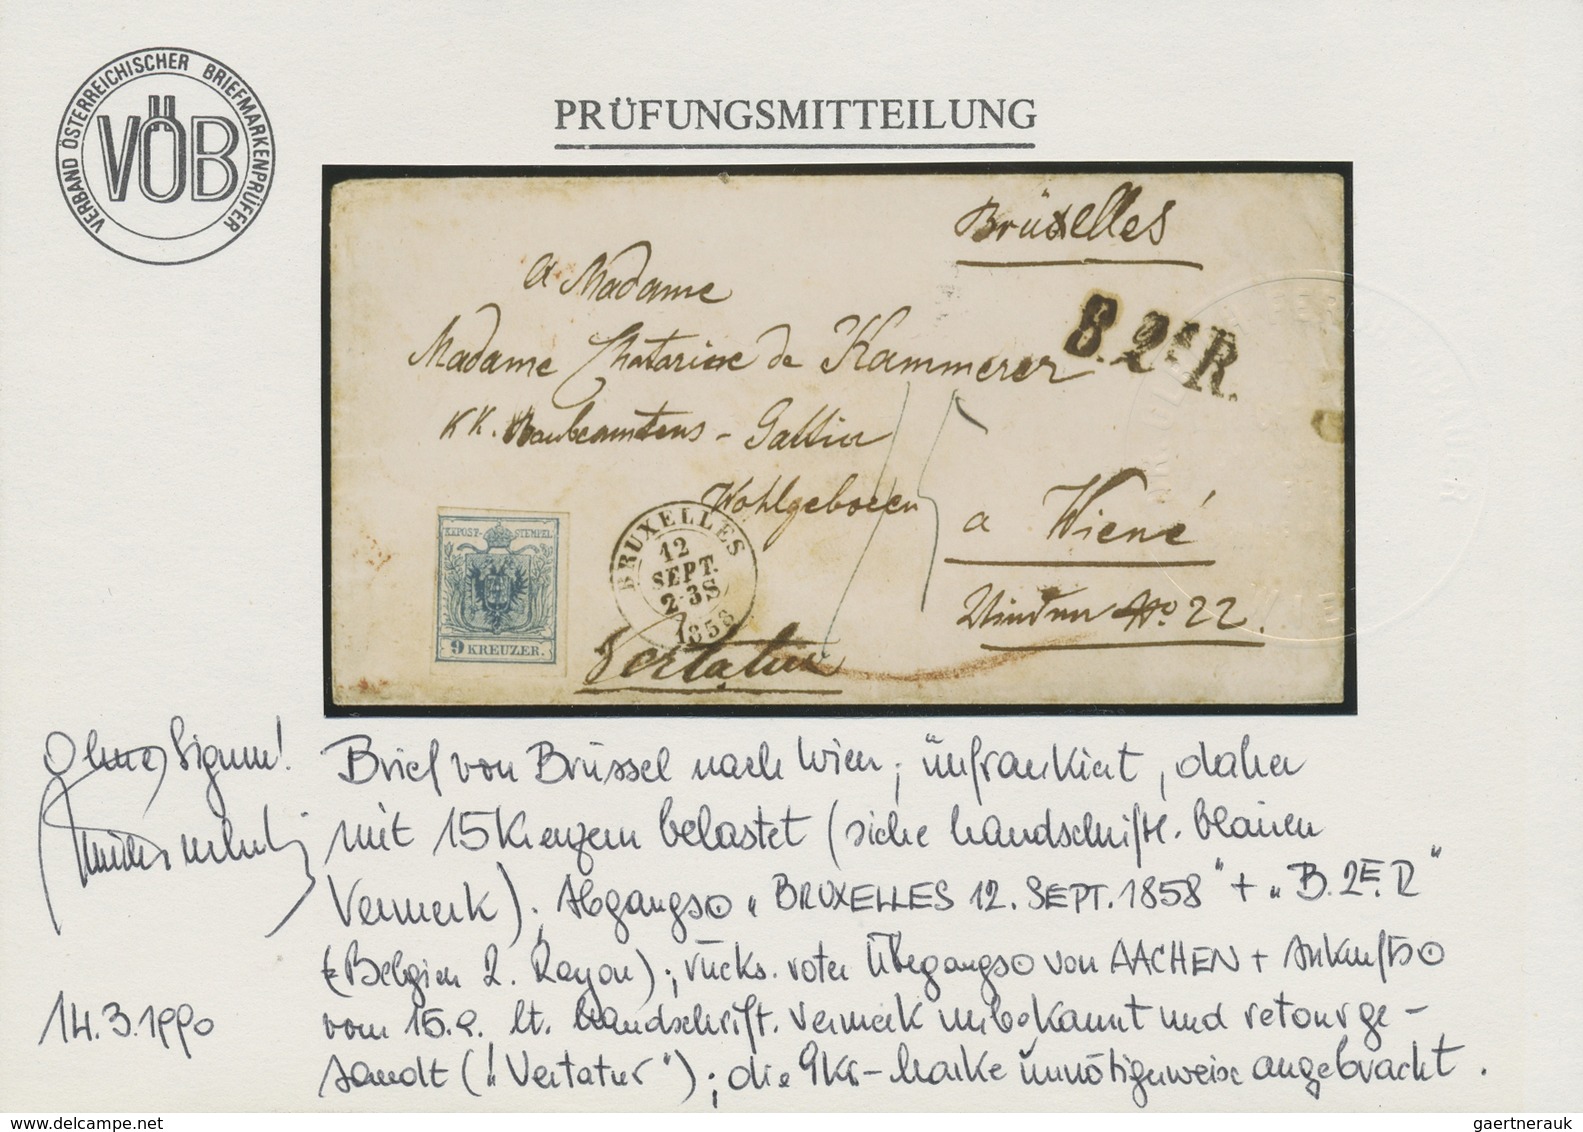 VERBAND ÖSTERREICHISCHER BRIEFMARKENPRÜFER
VÖB
PRÜFUNGSMITTEILUNG
Brüxelles
a Madame
Madame Chatarine de Kammerer
B. 2E R.
KK. Baubeamtens - Gattin
Wohlgeboren
15
a Wiené
No 22.
KKPOST-STEMPEL
9 KREUZER.
BRUXELLES
12
SEPT.
2-3S
1858
Vertatur
Ohne Signum!
Brief von Brüssel nach Wien; ünfrankiert, daher
mit 15 Kreuzern belastet (siehe handschriftl. blauen
Vermerk). Abgangs⊙ "BRUXELLES 12. SEPT. 1858" + "B. 2E. R"
(= Belgien 2. Rayon); rücks. roter Übergangs⊙ von AACHEN + Ankunfts⊙
14.3.1990
vom 15.9. lt. handschrift. Vermerk unbekannt und retourge-
sandt ("Vertatur"); die 9Kr-Marke ünnötigerweise angebracht.
gaertnerauk